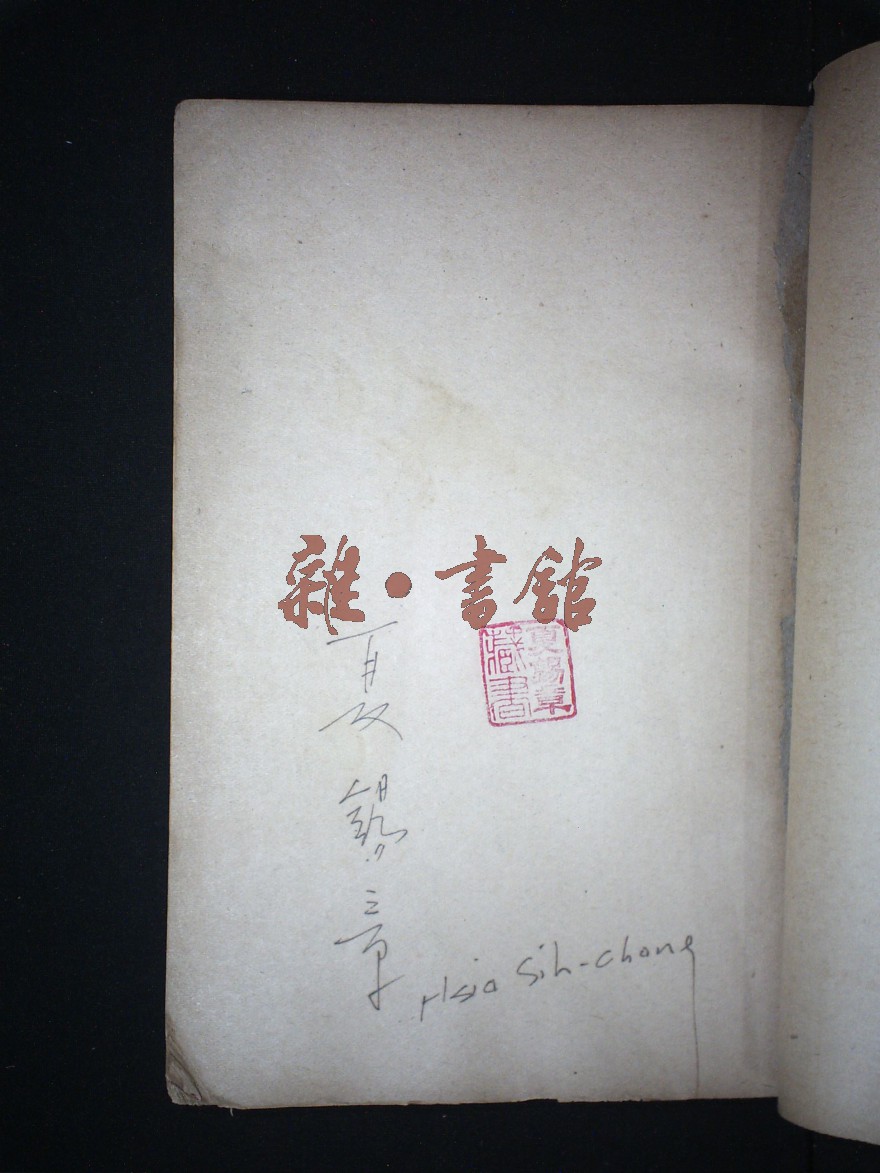 雜·書館
夏錫章
藏書
夏錫章
Hsia Sih-chang